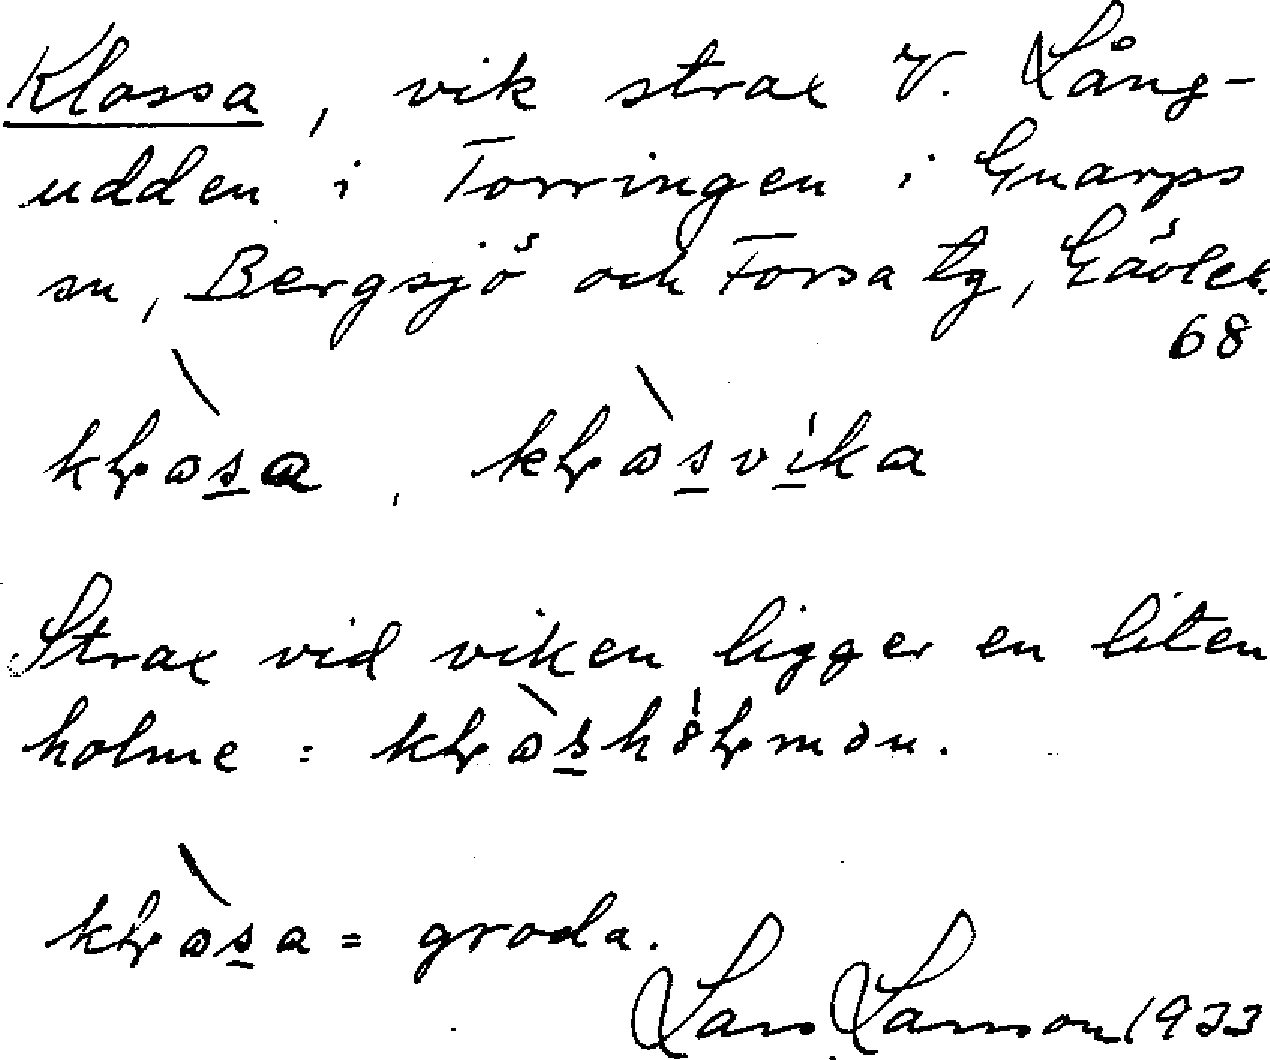 Klossa, vik strax V. Lång-
udden i Torringen i Gnarps
sn, Bergsjö och Forsa tg, Gävleb.
68
kḷɷ̀s̲a, kḷɷ̀s̲vi̲ka
Strax vid viken ligger en liten
holme: kḷɷ̀s̲hȯḷmən.
kḷɷ̀s̲a = groda.
Lars Larsson 1933